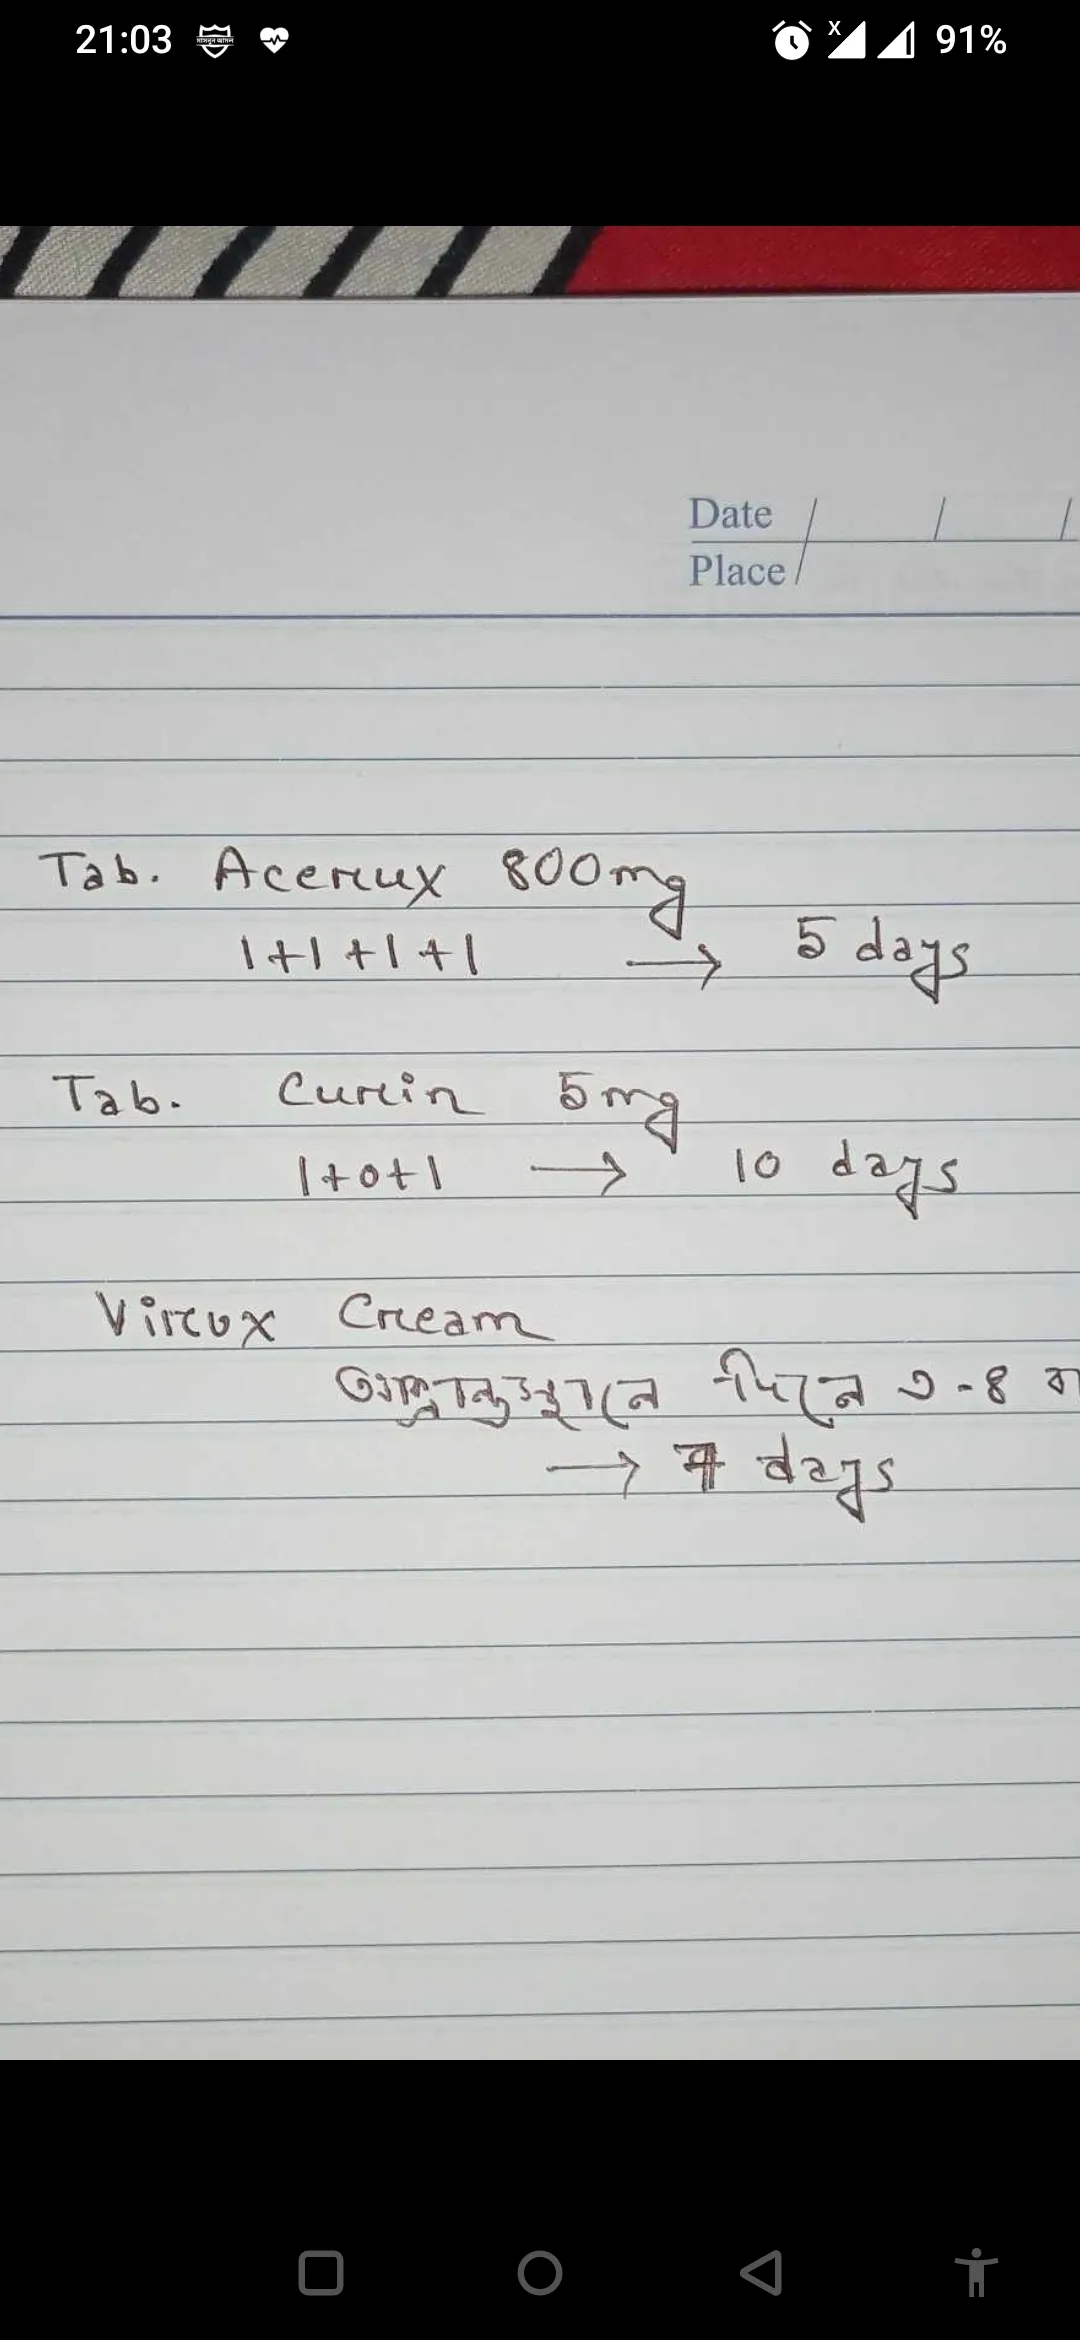 21:03
91%
Date
Place
Tab. Acerux 800mg
1+1+1+1 → 5 days
Tab. Curin 5mg
1+0+1 → 10 days
Virux Cream
আক্রান্তস্থানে দিনে ৩-৪ বা
→ 7 days